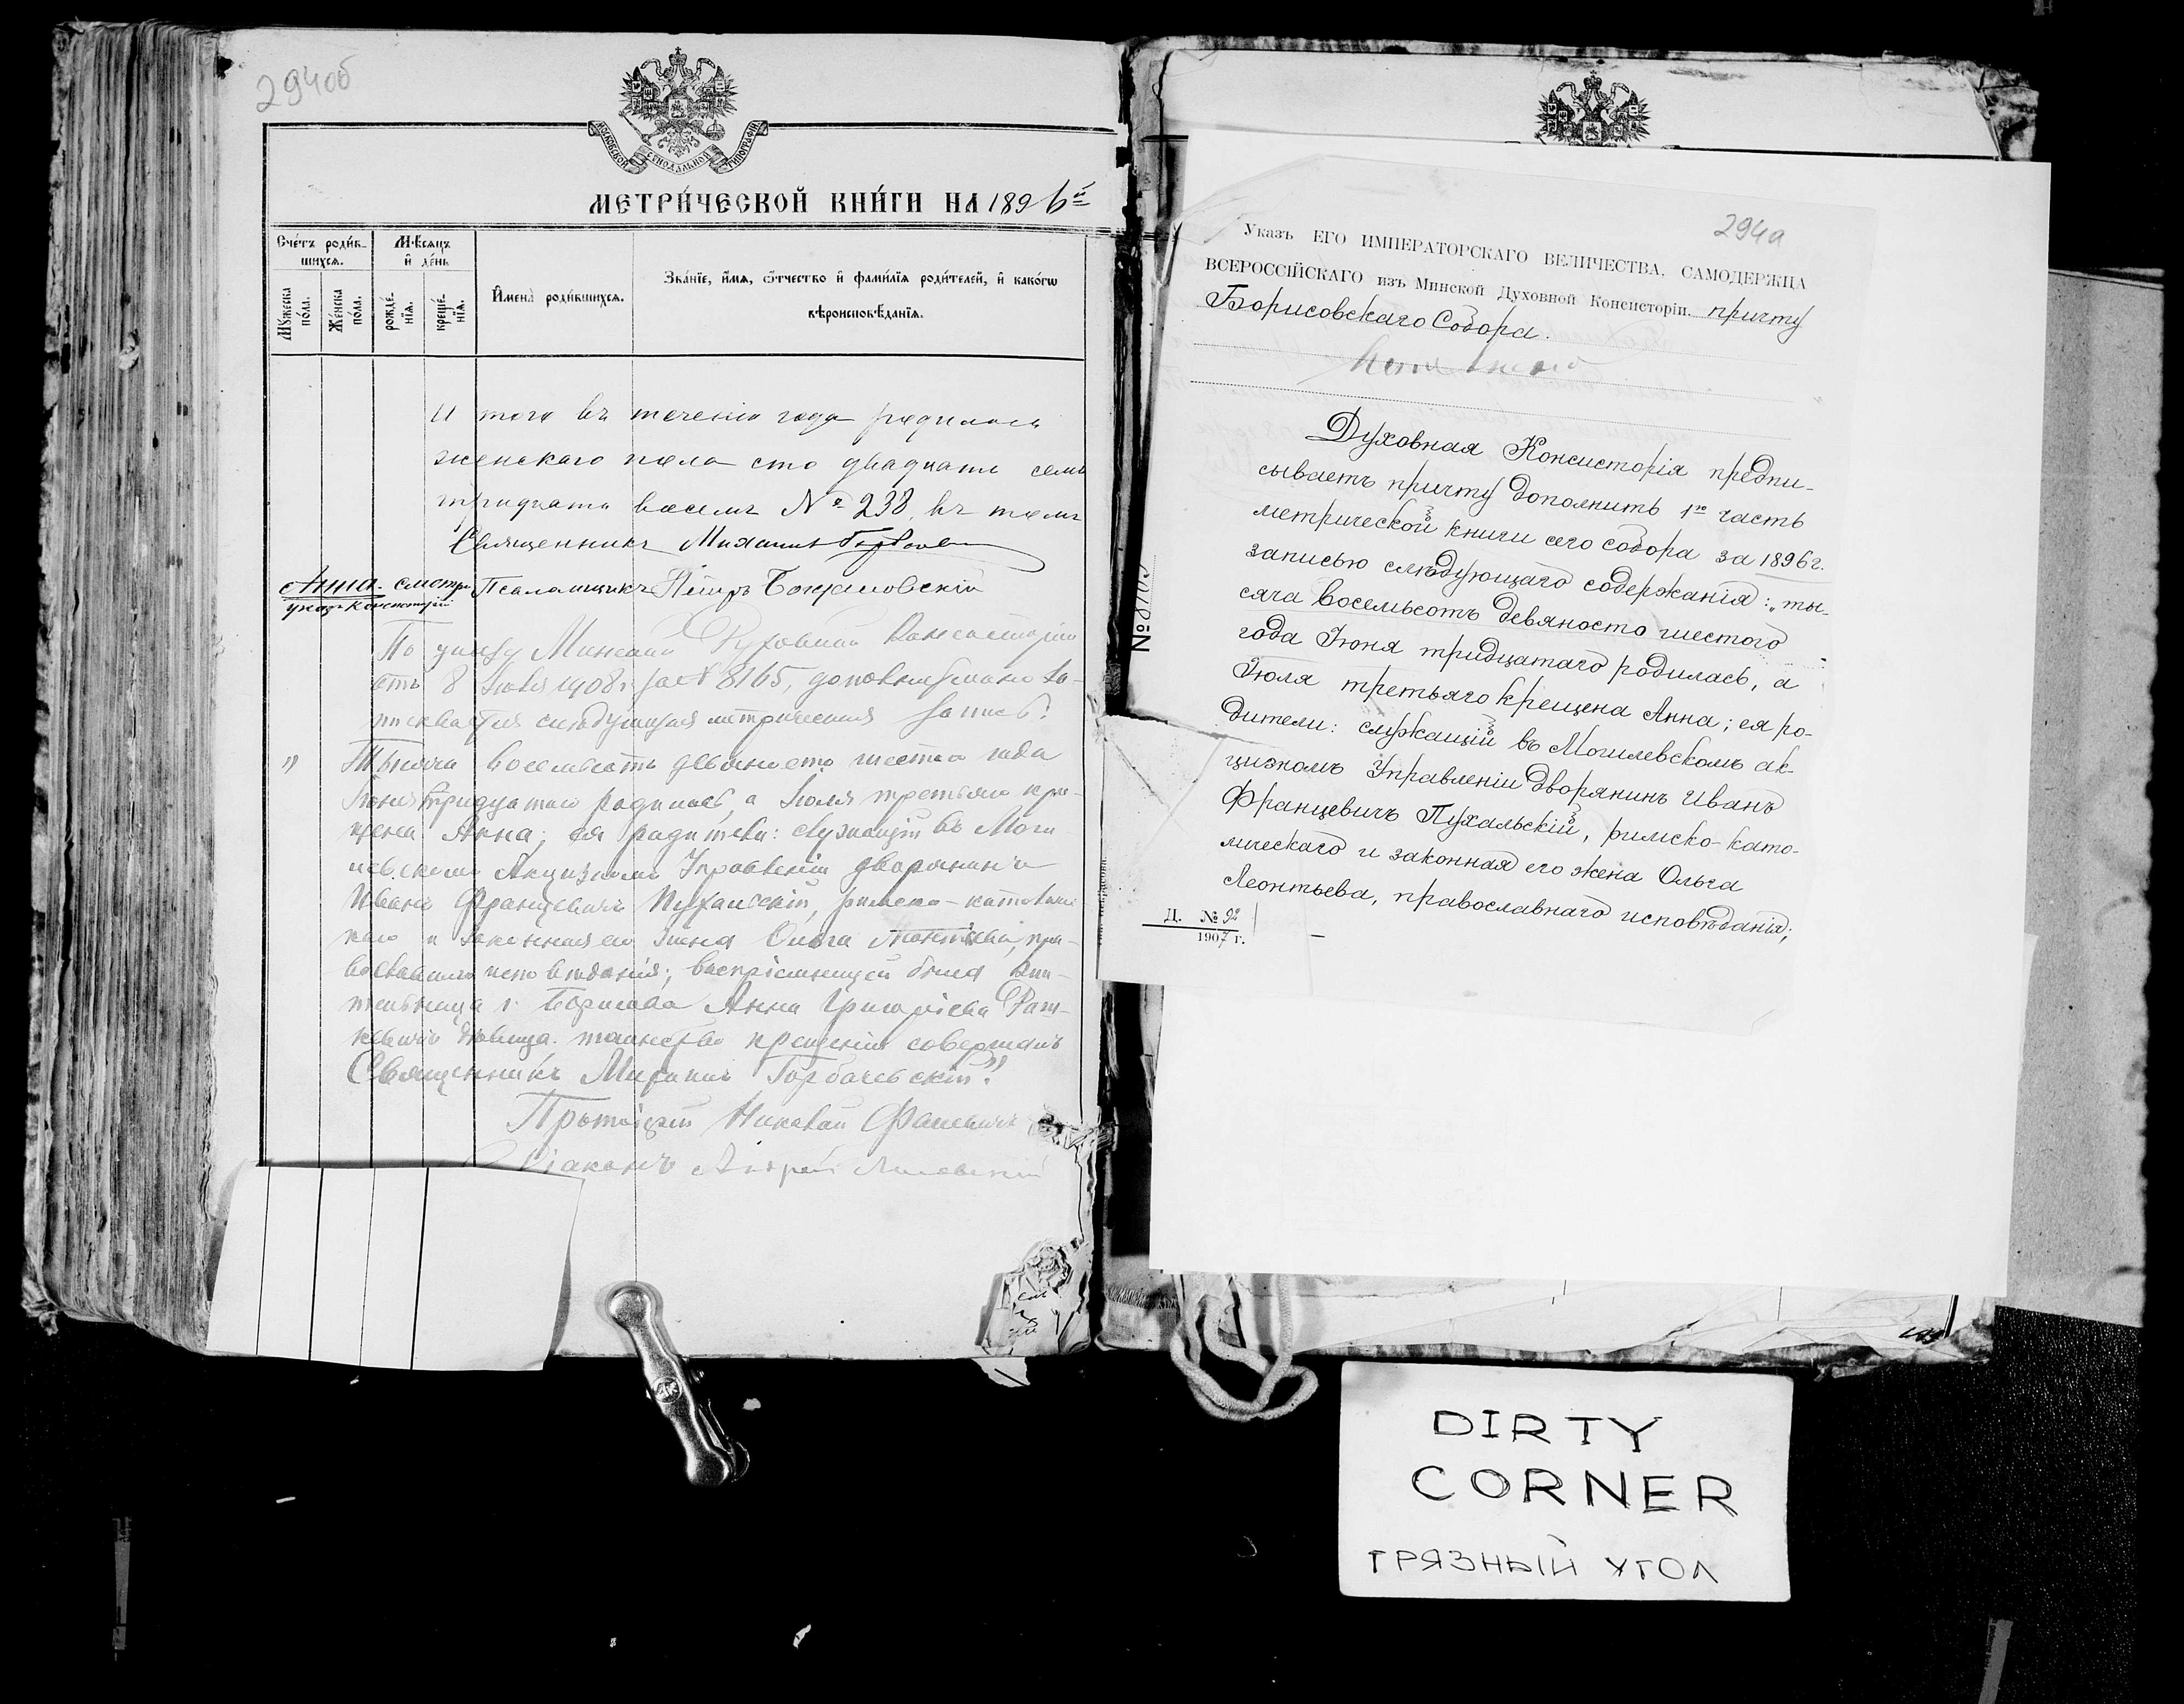 294об
МОСКОВСКОЙ СѴНОДАЛЬНОЙ ТИПОГРАФІИ
МЕТРИ́ЧЕСКОЙ КНИ́ГИ НА 1896й
Сче́тъ роди́в-
шихся.
Мѣ́сяцъ
и҆ де́нь
Му́жеска
по́ла.
Же́нска
по́ла.
рожде́-
нїя.
креще́-
нїя.
И҆мена̀ роди́вшихся.
Зва́нїе, и҆́мя, ѻ҆́тчество и҆ фами́лїя роди́телей, и҆ како́гѡ
вѣроисповѣ́данїя.
И того въ теченіи года родилось
женскаго пола сто двадцать семь
тридцать восемь № 238, въ томъ
Священникъ Михаилъ
Анна. смотри
указъ Консисторіи
Псаломщикъ Петръ
По указу Минской Духовной Консисторіи
отъ 8 Іюля 1908 г. за № 8165,
слѣдующая метрическая запись:
" Тысяча восемьсотъ девяносто шестого года
Іюня тридцатаго родилась, а Іюля третьяго кре-
щена Анна; ея родители: служащій въ Моги
левскомъ Акцизномъ Управленіи дворянинъ
Иванъ Францевичъ Пухальскій, римско-католичес
каго и законная его жена Ольга Леонтьева, пра-
вославнаго исповѣданія; воспріемницей была
г. Борисова Анна Григорьева Раш-
кевичъ дѣвица. таинство крещенія совершалъ
Священникъ Михаилъ Горбачевскій."
Протоіерей Николай
Діаконъ Андрей
294а
Указъ ЕГО ИМПЕРАТОРСКАГО ВЕЛИЧЕСТВА, САМОДЕРЖЦА
ВСЕРОССІЙСКАГО изъ Минской Духовной Консисторіи. причту
Борисовскаго Собора.
Духовная Консисторія предпи-
сываетъ причту дополнить 1ю часть
метрической книги сего собора за 1896 г.
записью слѣдующаго содержанія: „ты-
сяча восемьсотъ девяносто шестого
года Іюня тридцатаго родилась, а
Іюля третьяго крещена Анна; ея ро-
дители: служащій въ Могилевскомъ ак-
цизномъ Управленіи дворянинъ Иванъ
Францевичъ Пухальскій, римско-като-
лическаго и законная его жена Ольга
Леонтьева, православнаго исповѣданія;
Д. № 92
1907 г.
DIRTY
CORNER
ГРЯЗНЫЙ УГОЛ